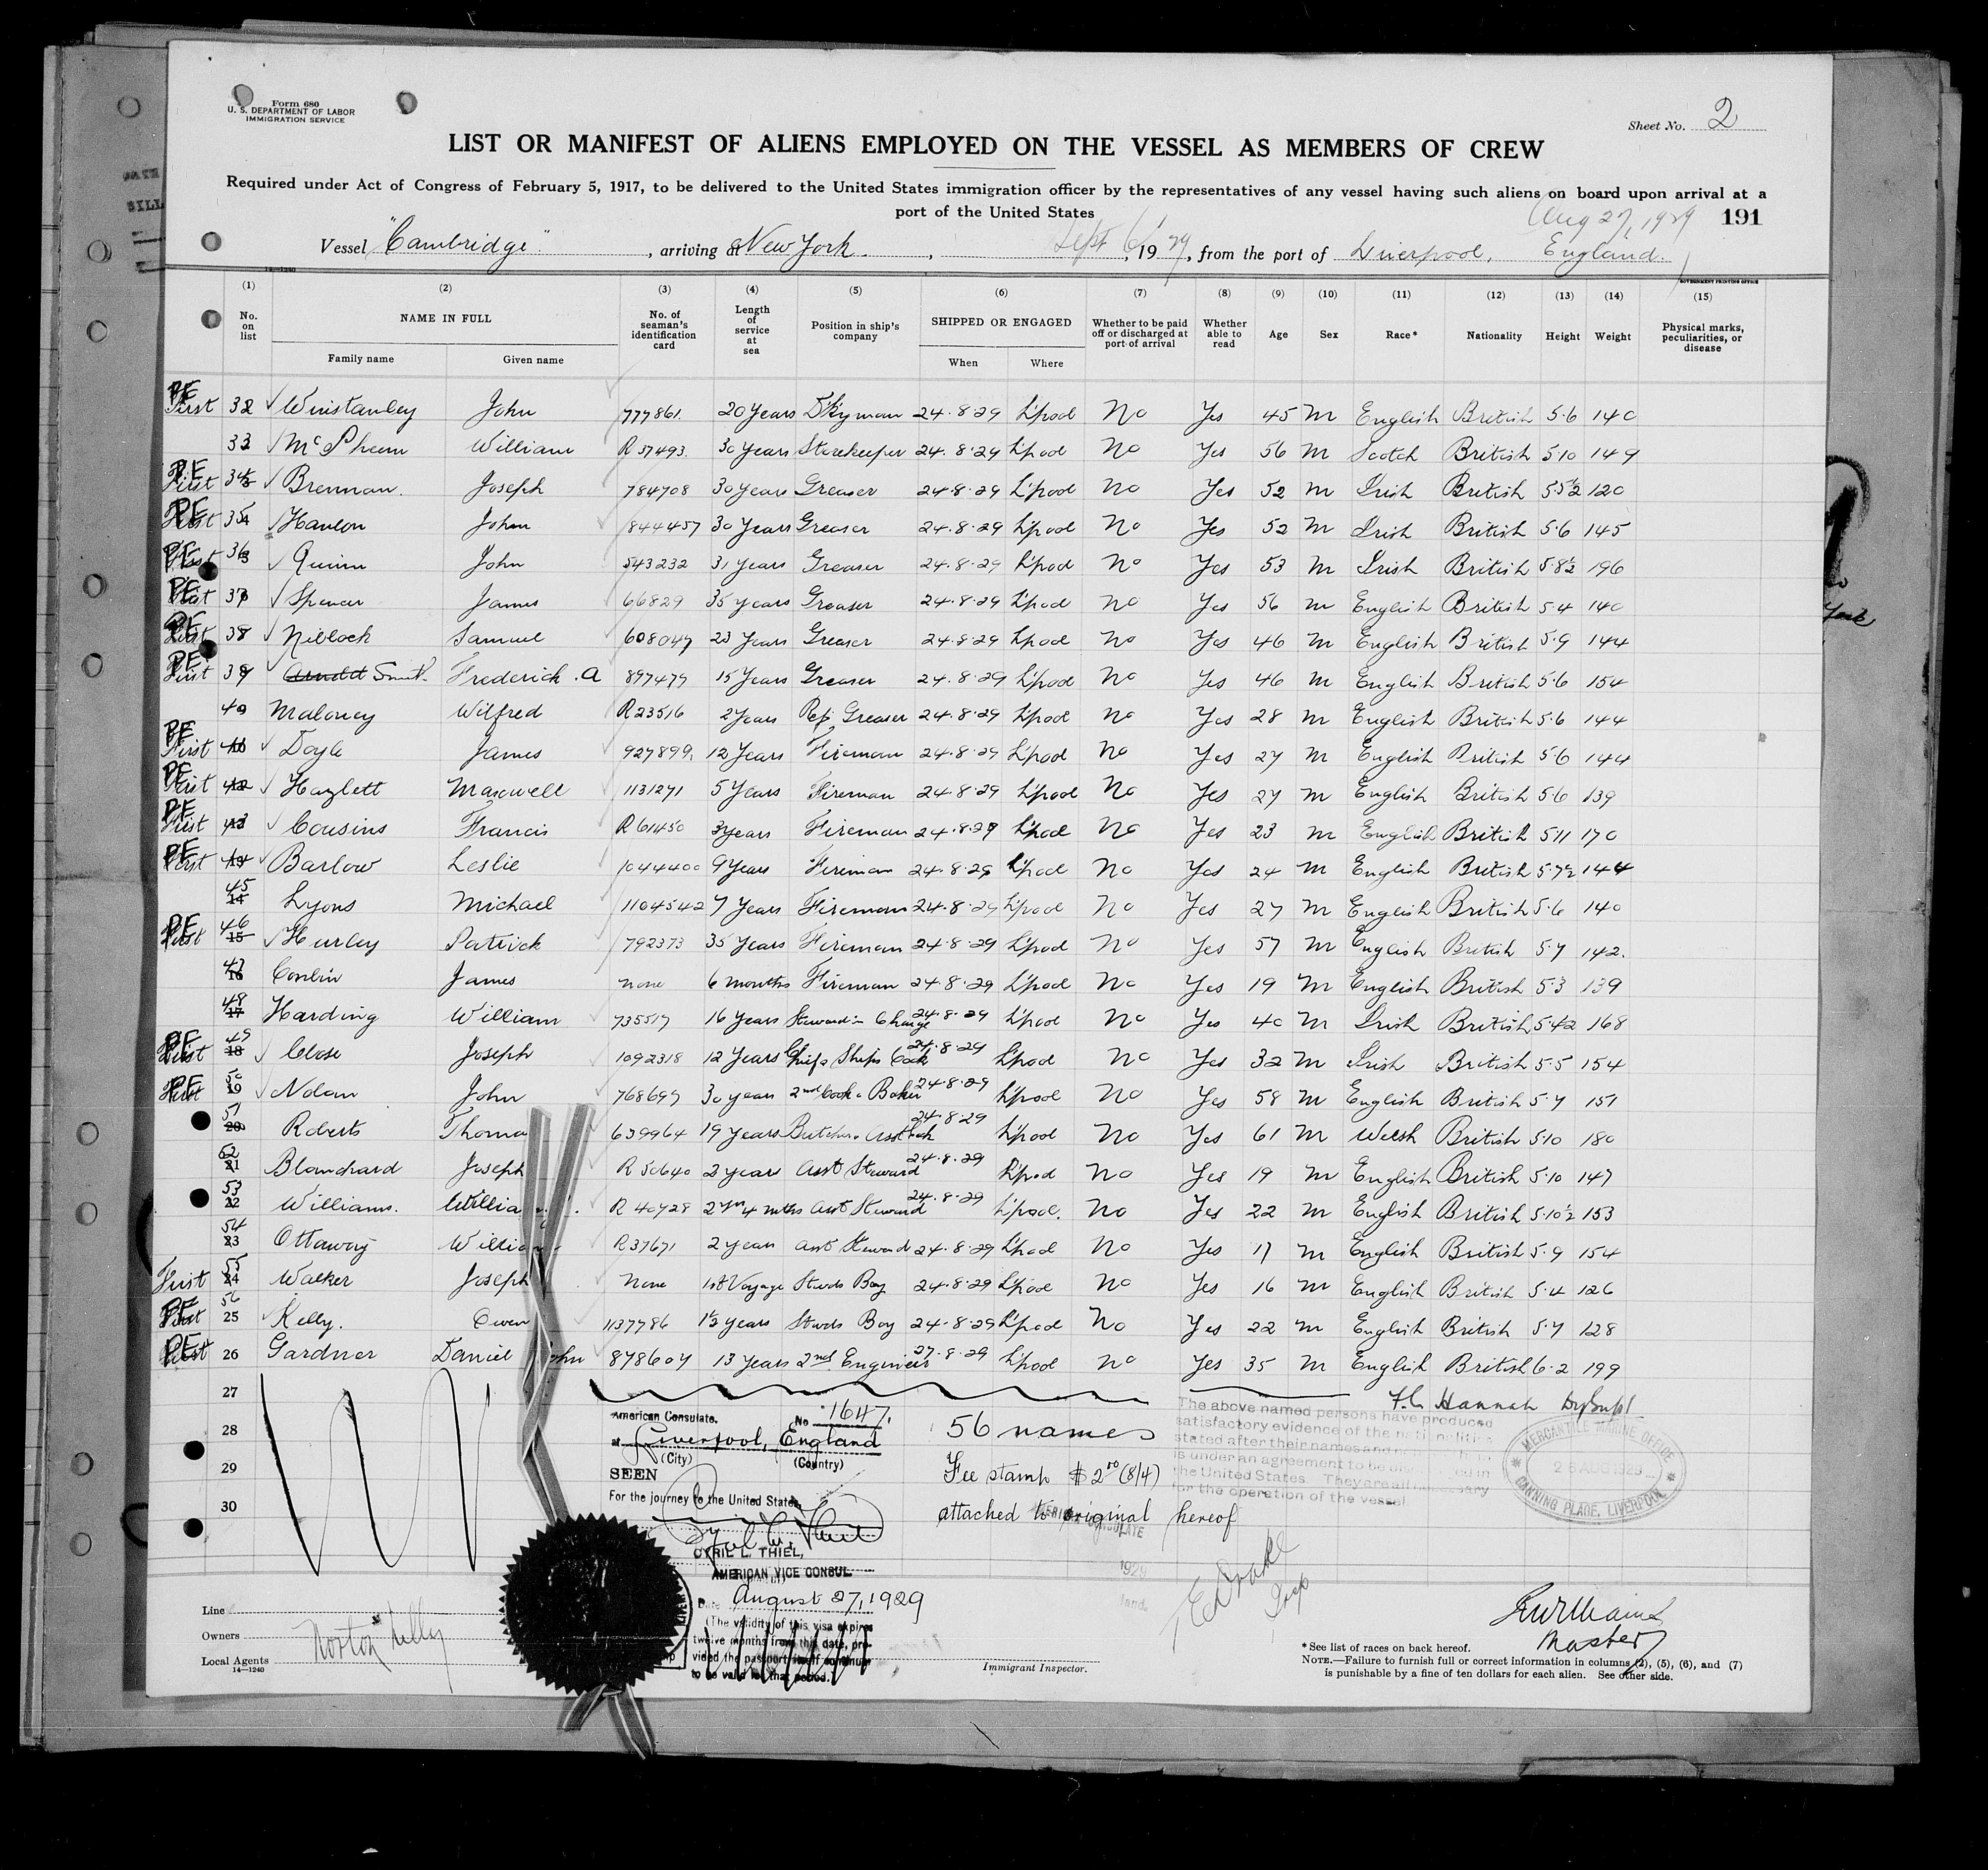 Form 680
U. S. DEPARTMENT OF LABOR
IMMIGRATION SERVICE
Sheet No. 2
LIST OR MANIFEST OF ALIENS EMPLOYED ON THE VESSEL AS MEMBERS OF CREW
Required under Act of Congress of February 5, 1917, to be delivered to the United States immigration officer by the representatives of any vessel having such aliens on board upon arrival at a
port of the United States
Aug 27, 1929 191
Vessel "Cambridge", arriving at New York, Sept 6, 1929, from the port of Liverpool, England.
14—1240 GOVERNMENT PRINTING OFFICE
(1) (2) (3) (4) (5) (6) (7) (8) (9) (10) (11) (12) (13) (14) (15)
No. on list NAME IN FULL No. of seaman's identification card Length of service at sea Position in ship's company SHIPPED OR ENGAGED Whether to be paid off or discharged at port of arrival Whether able to read Age Sex Race* Nationality Height Weight Physical marks, peculiarities, or disease
Family name Given name When Where
PF First 32 Winstanley John 777861 20 Years D'kyman 24.8.29 L'pool No Yes 45 M English British 5.6 140
33 McPheem William R 57493 30 years Storekeeper 24.8.29 L'pool No Yes 56 M Scotch British 5.10 149
PF First 34 Brennan Joseph 784708 30 years Greaser 24.8.29 L'pool No Yes 52 M Irish British 5.5½ 120
PF First 35 Hanlon John 844457 30 Years Greaser 24.8.29 L'pool No Yes 52 M Irish British 5.6 145
PF First 36 Quinn John 543232 31 years Greaser 24.8.29 L'pool No Yes 53 M Irish British 5.8½ 196
PF First 37 Spencer James 66829 35 years Greaser 24.8.29 L'pool No Yes 56 M English British 5.4 140
PF First 38 Niblock Samuel 608047 23 Years Greaser 24.8.29 L'pool No Yes 46 M English British 5.9 144
PF First 39 Arnold Smith Frederick. A 897477 15 Years Greaser 24.8.29 L'pool No Yes 46 M English British 5.6 154
40 Maloney Wilfred R 23516 2 Years Ref. Greaser 24.8.29 L'pool No Yes 28 M English British 5.6 144
PF First 41 Doyle James 927899 12 Years Fireman 24.8.29 L'pool No Yes 27 M English British 5.6 144
PF First 42 Hazlett Maxwell 1131271 5 Years Fireman 24.8.29 L'pool No Yes 27 M English British 5.6 139
PF First 43 Cousins Francis R 61450 3 years Fireman 24.8.29 L'pool No Yes 23 M English British 5.11 170
PF First 44 Barlow Leslie 1044400 9 Years Fireman 24.8.29 L'pool No Yes 24 M English British 5.7½ 144
45 14 Lyons Michael 1104542 7 Years Fireman 24.8.29 L'pool No Yes 27 M English British 5.6 140
PF First 46 15 Hurley Patrick 792373 35 Years Fireman 24.8.29 L'pool No Yes 57 M English British 5.7 142
47 16 Conlin James none 6 months Fireman 24.8.29 L'pool No Yes 19 M English British 5.3 139
48 17 Harding William 735517 16 Years Steward in Charge 24.8.29 L'pool No Yes 40 M Irish British 5.4½ 168
PF First 49 18 Close Joseph 1092318 12 Years Chief Ships Cook 24.8.29 L'pool No Yes 32 M Irish British 5.5 154
PF First 50 19 Nolan John 768697 30 years 2nd Cook & Baker 24.8.29 L'pool No Yes 58 M English British 5.7 151
51 20 Roberts Thoma 639964 19 years Butcher & Asst Cook 24.8.29 L'pool No Yes 61 M Welsh British 5.10 180
52 21 Blanchard Joseph R 50640 2 years Asst Steward 24.8.29 L'pool No Yes 19 M English British 5.10 147
53 22 Williams. Willia R 40728 2 yrs 4 mths Asst Steward 24.8.29 L'pool No Yes 22 M English British 5.10½ 153
54 23 Ottaway William R 37671 2 years Asst Steward 24.8.29 L'pool No Yes 17 M English British 5.9 154
First 55 24 Walker Joseph None 1st Voyage Stwds Boy 24.8.29 L'pool No Yes 16 M English British 5.4 126
PF First 56 25 Kelly. Owen 1137786 1½ years Stwds Boy 24.8.29 L'pool No Yes 22 M English British 5.7 128
PF First 26 Gardner Daniel John 878607 13 Years 2nd Engineer 27.8.29 L'pool No Yes 35 M English British 6.2 199
27
28
29
30
American Consulate. No 1647.
at Liverpool, England
(City) (Country)
SEEN
For the journey to the United States,
Cyril L. Thiel
CYRIL L. THIEL,
AMERICAN VICE CONSUL
Date August 27, 1929
(The validity of this visa expires
twelve months from this date, pro-
vided the passport itself continue
to be valid for that period.)
56 names
Fee stamp $2.00 (8/4)
attached to original hereof
F.C. Hannah
The above named persons have produced
satisfactory evidence of the nationalities
stated after their names and
is under an agreement to be
the United States. They are all necessary
for the operation of the vessel.
MERCANTILE MARINE OFFICE
26 AUG 1929
CANNING PLACE, LIVERPOOL
E Drake
Insp
Master
Line
Owners Norton Lilly
Local Agents
14—1240
Immigrant Inspector.
*See list of races on back hereof.
NOTE.—Failure to furnish full or correct information in columns (2), (5), (6), and (7)
is punishable by a fine of ten dollars for each alien. See other side.